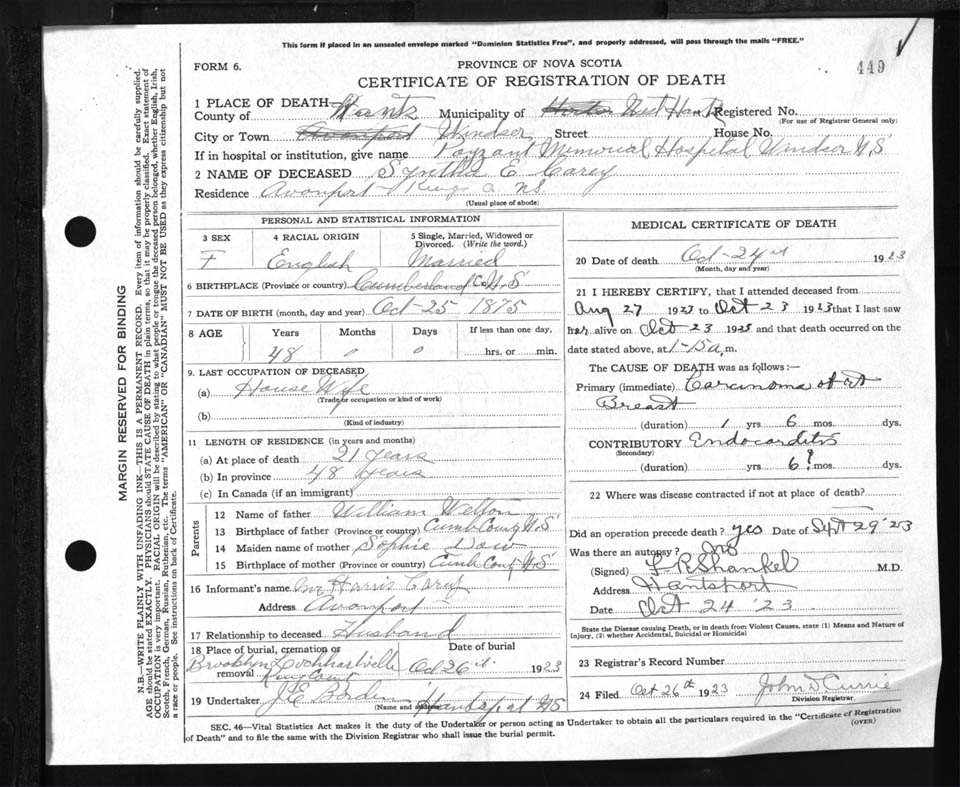 This form if placed in an unsealed envelope marked "Dominion Statistics Free", and properly addressed, will pass through the mails "FREE."
FORM 6.
PROVINCE OF NOVA SCOTIA
449
CERTIFICATE OF REGISTRATION OF DEATH
1 PLACE OF DEATH—
County of Hants Municipality of West Hants Registered No.
(For use of Registrar General only)
City or Town Avonport Windsor Street House No.
If in hospital or institution, give name Payzant Memorial Hospital Windsor N.S
2 NAME OF DECEASED E. Carey
Residence Avonport Kings Co NS
(Usual place of abode)
PERSONAL AND STATISTICAL INFORMATION
3 SEX
F
4 RACIAL ORIGIN
English
5 Single, Married, Widowed or Divorced. (Write the word.)
Married
6 BIRTHPLACE (Province or country) Cumberland Co N.S
7 DATE OF BIRTH (month, day and year) Oct 25 1875
8 AGE Years Months Days If less than one day,
48 0 0 hrs. or min.
9. LAST OCCUPATION OF DECEASED
(a) House Wife
(Trade or occupation or kind of work)
(b)
(Kind of industry)
11 LENGTH OF RESIDENCE (in years and months)
(a) At place of death 21 years
(b) In province 48 years
(c) In Canada (if an immigrant)
Parents
12 Name of father William Welton
13 Birthplace of father (Province or country) Cumb County N.S
14 Maiden name of mother Sophie Dow
15 Birthplace of mother (Province or country) Cumb County N.S
16 Informant's name Harris Carey
Address Avonport
17 Relationship to deceased Husband
18 Place of burial, cremation or removal Date of burial
Brooklyn Lochhartville Oct 26th 1923
Kings Count
19 Undertaker J.E Borden Hantsport NS
(Name and address)
MEDICAL CERTIFICATE OF DEATH
20 Date of death Oct-24th 1923
(Month, day and year)
21 I HEREBY CERTIFY, that I attended deceased from
Aug 27 1923 to Oct 23 1923 that I last saw
her alive on Oct 23 1923 and that death occurred on the
date stated above, at 1-15 a.m.
The CAUSE OF DEATH was as follows:—
Primary (immediate) Carcinoma of rt
Breast
(duration) 1 yrs 6 mos. dys.
CONTRIBUTORY Endocarditis
(Secondary)
(duration) yrs 6? mos. dys.
22 Where was disease contracted if not at place of death?
Did an operation precede death? yes Date of Sept 29 '23
Was there an autopsy? No
(Signed) Shankel M.D.
Address Hantsport
Date Oct 24 '23
State the Disease causing Death, or in death from Violent Causes, state (1) Means and Nature of Injury, (2) whether Accidental, Suicidal or Homicidal
23 Registrar's Record Number
24 Filed Oct 26th 1923 John D Currie
Division Registrar
SEC. 46—Vital Statistics Act makes it the duty of the Undertaker or person acting as Undertaker to obtain all the particulars required in the "Certificate of Registration
of Death" and to file the same with the Division Registrar who shall issue the burial permit.
(OVER)
MARGIN RESERVED FOR BINDING
N.B.—WRITE PLAINLY WITH UNFADING INK—THIS IS A PERMANENT RECORD. Every item of information should be carefully supplied.
AGE should be stated EXACTLY. PHYSICIANS should STATE CAUSE OF DEATH in plain terms, so that it may be properly classified. Exact statement of
OCCUPATION is very important. RACIAL ORIGIN will be described by stating to what people or tongue the deceased person belonged, whether English, Irish,
Scotch, French, German, Russian, Ruthenian, etc. The terms "AMERICAN" OR "CANADIAN" MUST NOT BE USED as they express citizenship but not
a race or people. See instructions on back of Certificate.